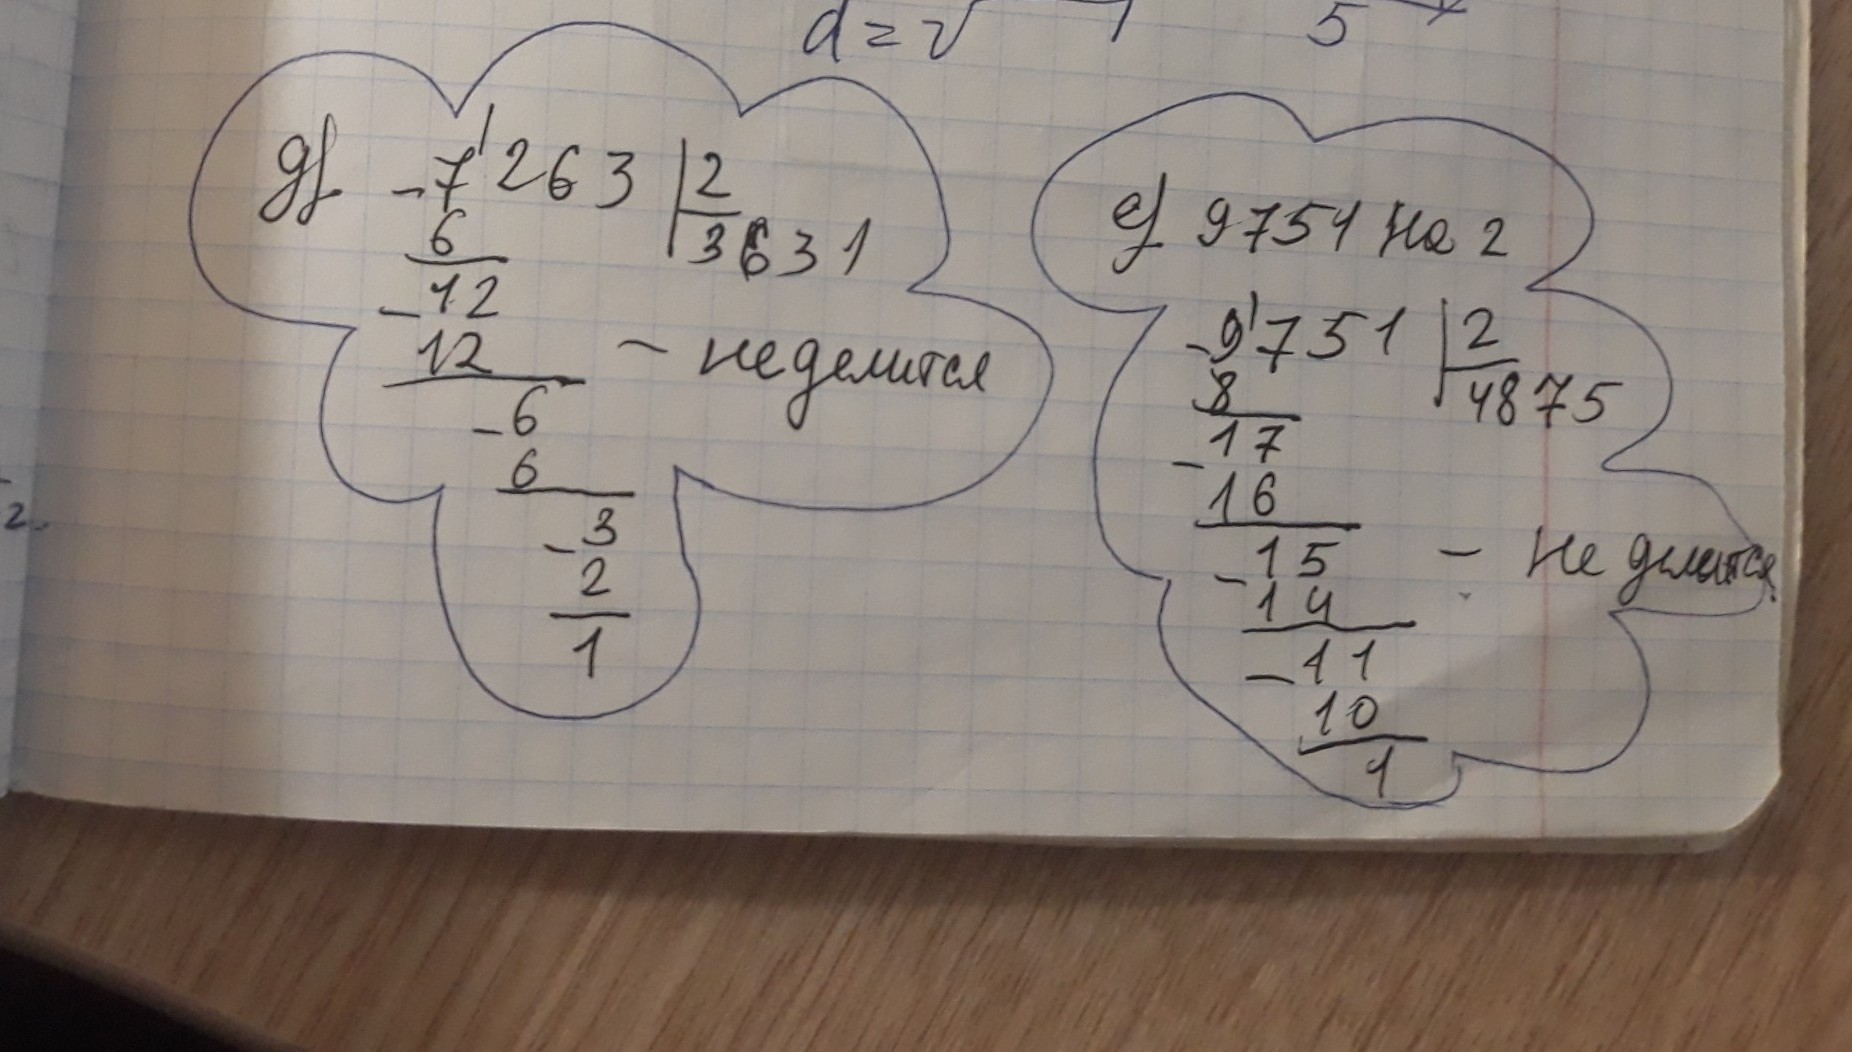 d = √
5
2.
д) -7'263 | 2
6 3631
-12
12 - не делится
-6
6
-3
2
1
е) 9751 на 2
-9'751 | 2
8 4875
17
-16
15 - не делится
-14
-11
10
1